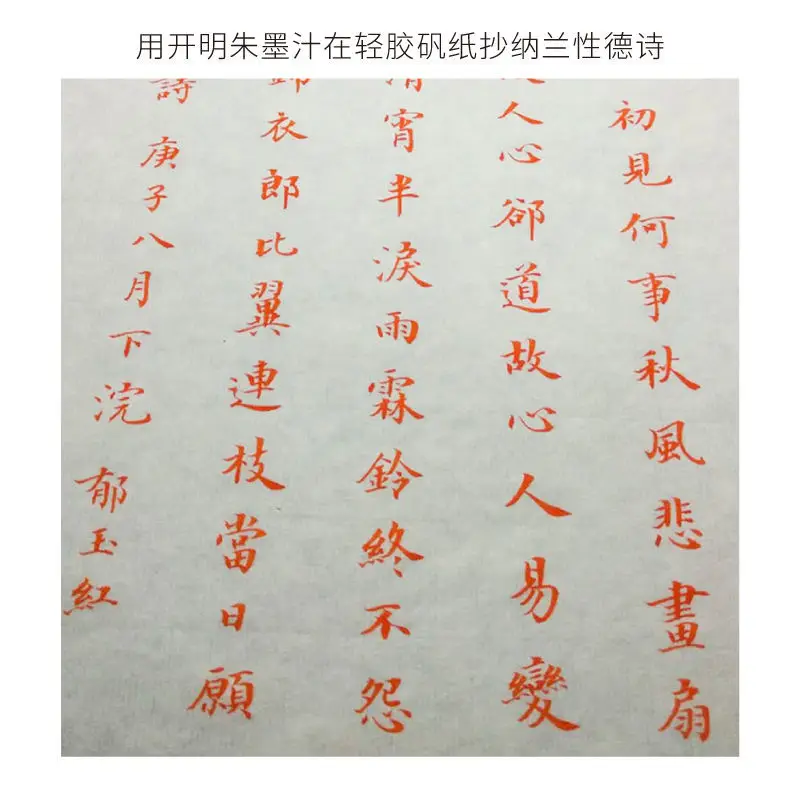 用开明朱墨汁在轻胶矾纸抄纳兰性德诗
初見何事秋風悲畫扇
人心卻道故心人易變
清宵半淚雨霖鈴終不怨
錦衣郎比翼連枝當日願
詩 庚子八月下浣 郁玉紅